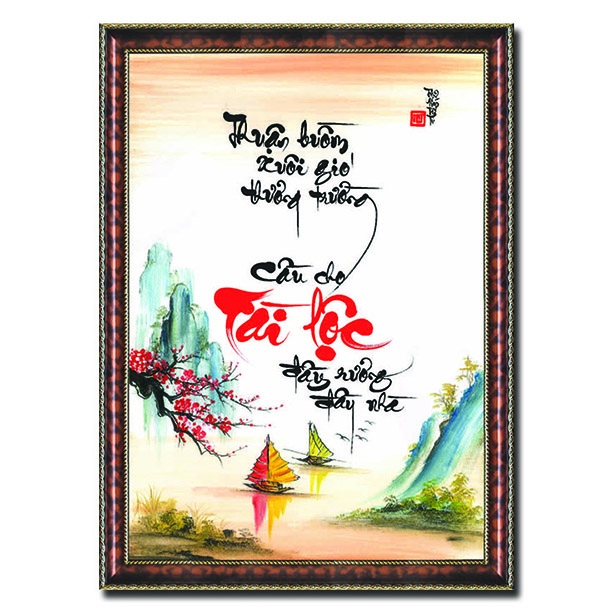 Thuận buồm
xuôi gió
thương trường
Cầu cho
Tài lộc
đầy xưởng
đầy nhà